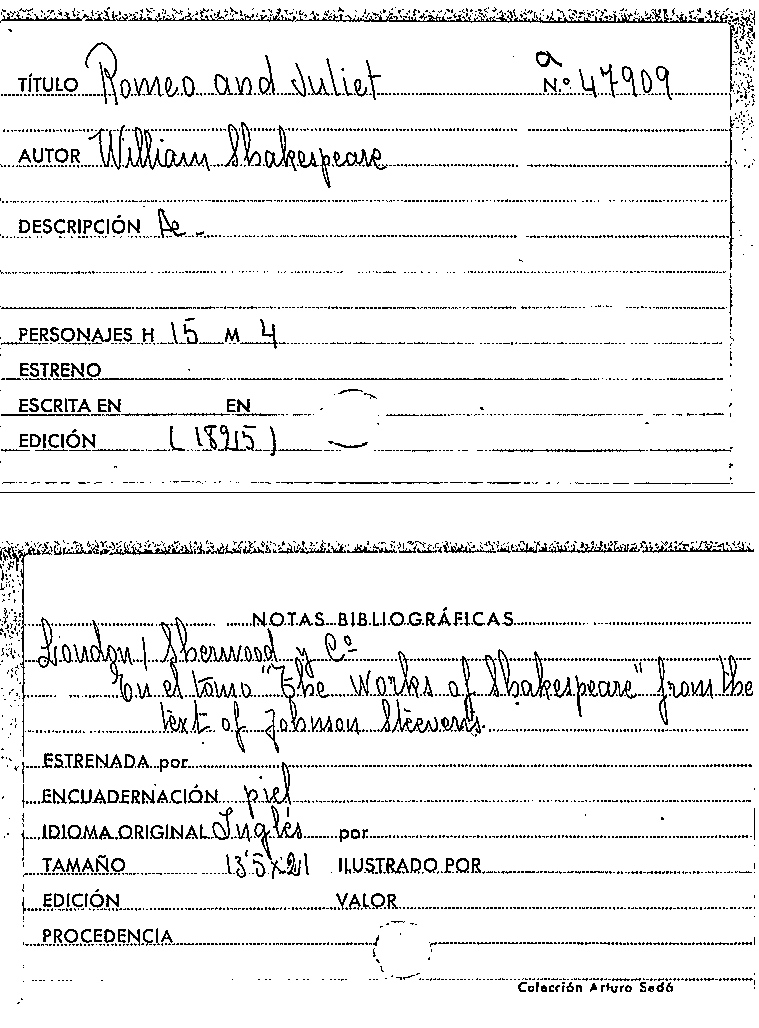 TÍTULO Romeo and Juliet
a
N.º 47909
AUTOR William Shakespeare
DESCRIPCIÓN Ae -
PERSONAJES H 15 M 4
ESTRENO
ESCRITA EN EN
EDICIÓN (18915)
NOTAS BIBLIOGRÁFICAS
London / Sherwood y Cº
En el tomo "The Works of Shakespeare" from the
text of Johnson Steevens.
ESTRENADA por
ENCUADERNACIÓN piel
IDIOMA ORIGINAL Inglés por
TAMAÑO 13'5x21 ILUSTRADO POR
EDICIÓN VALOR
PROCEDENCIA
Colección Arturo Sedó